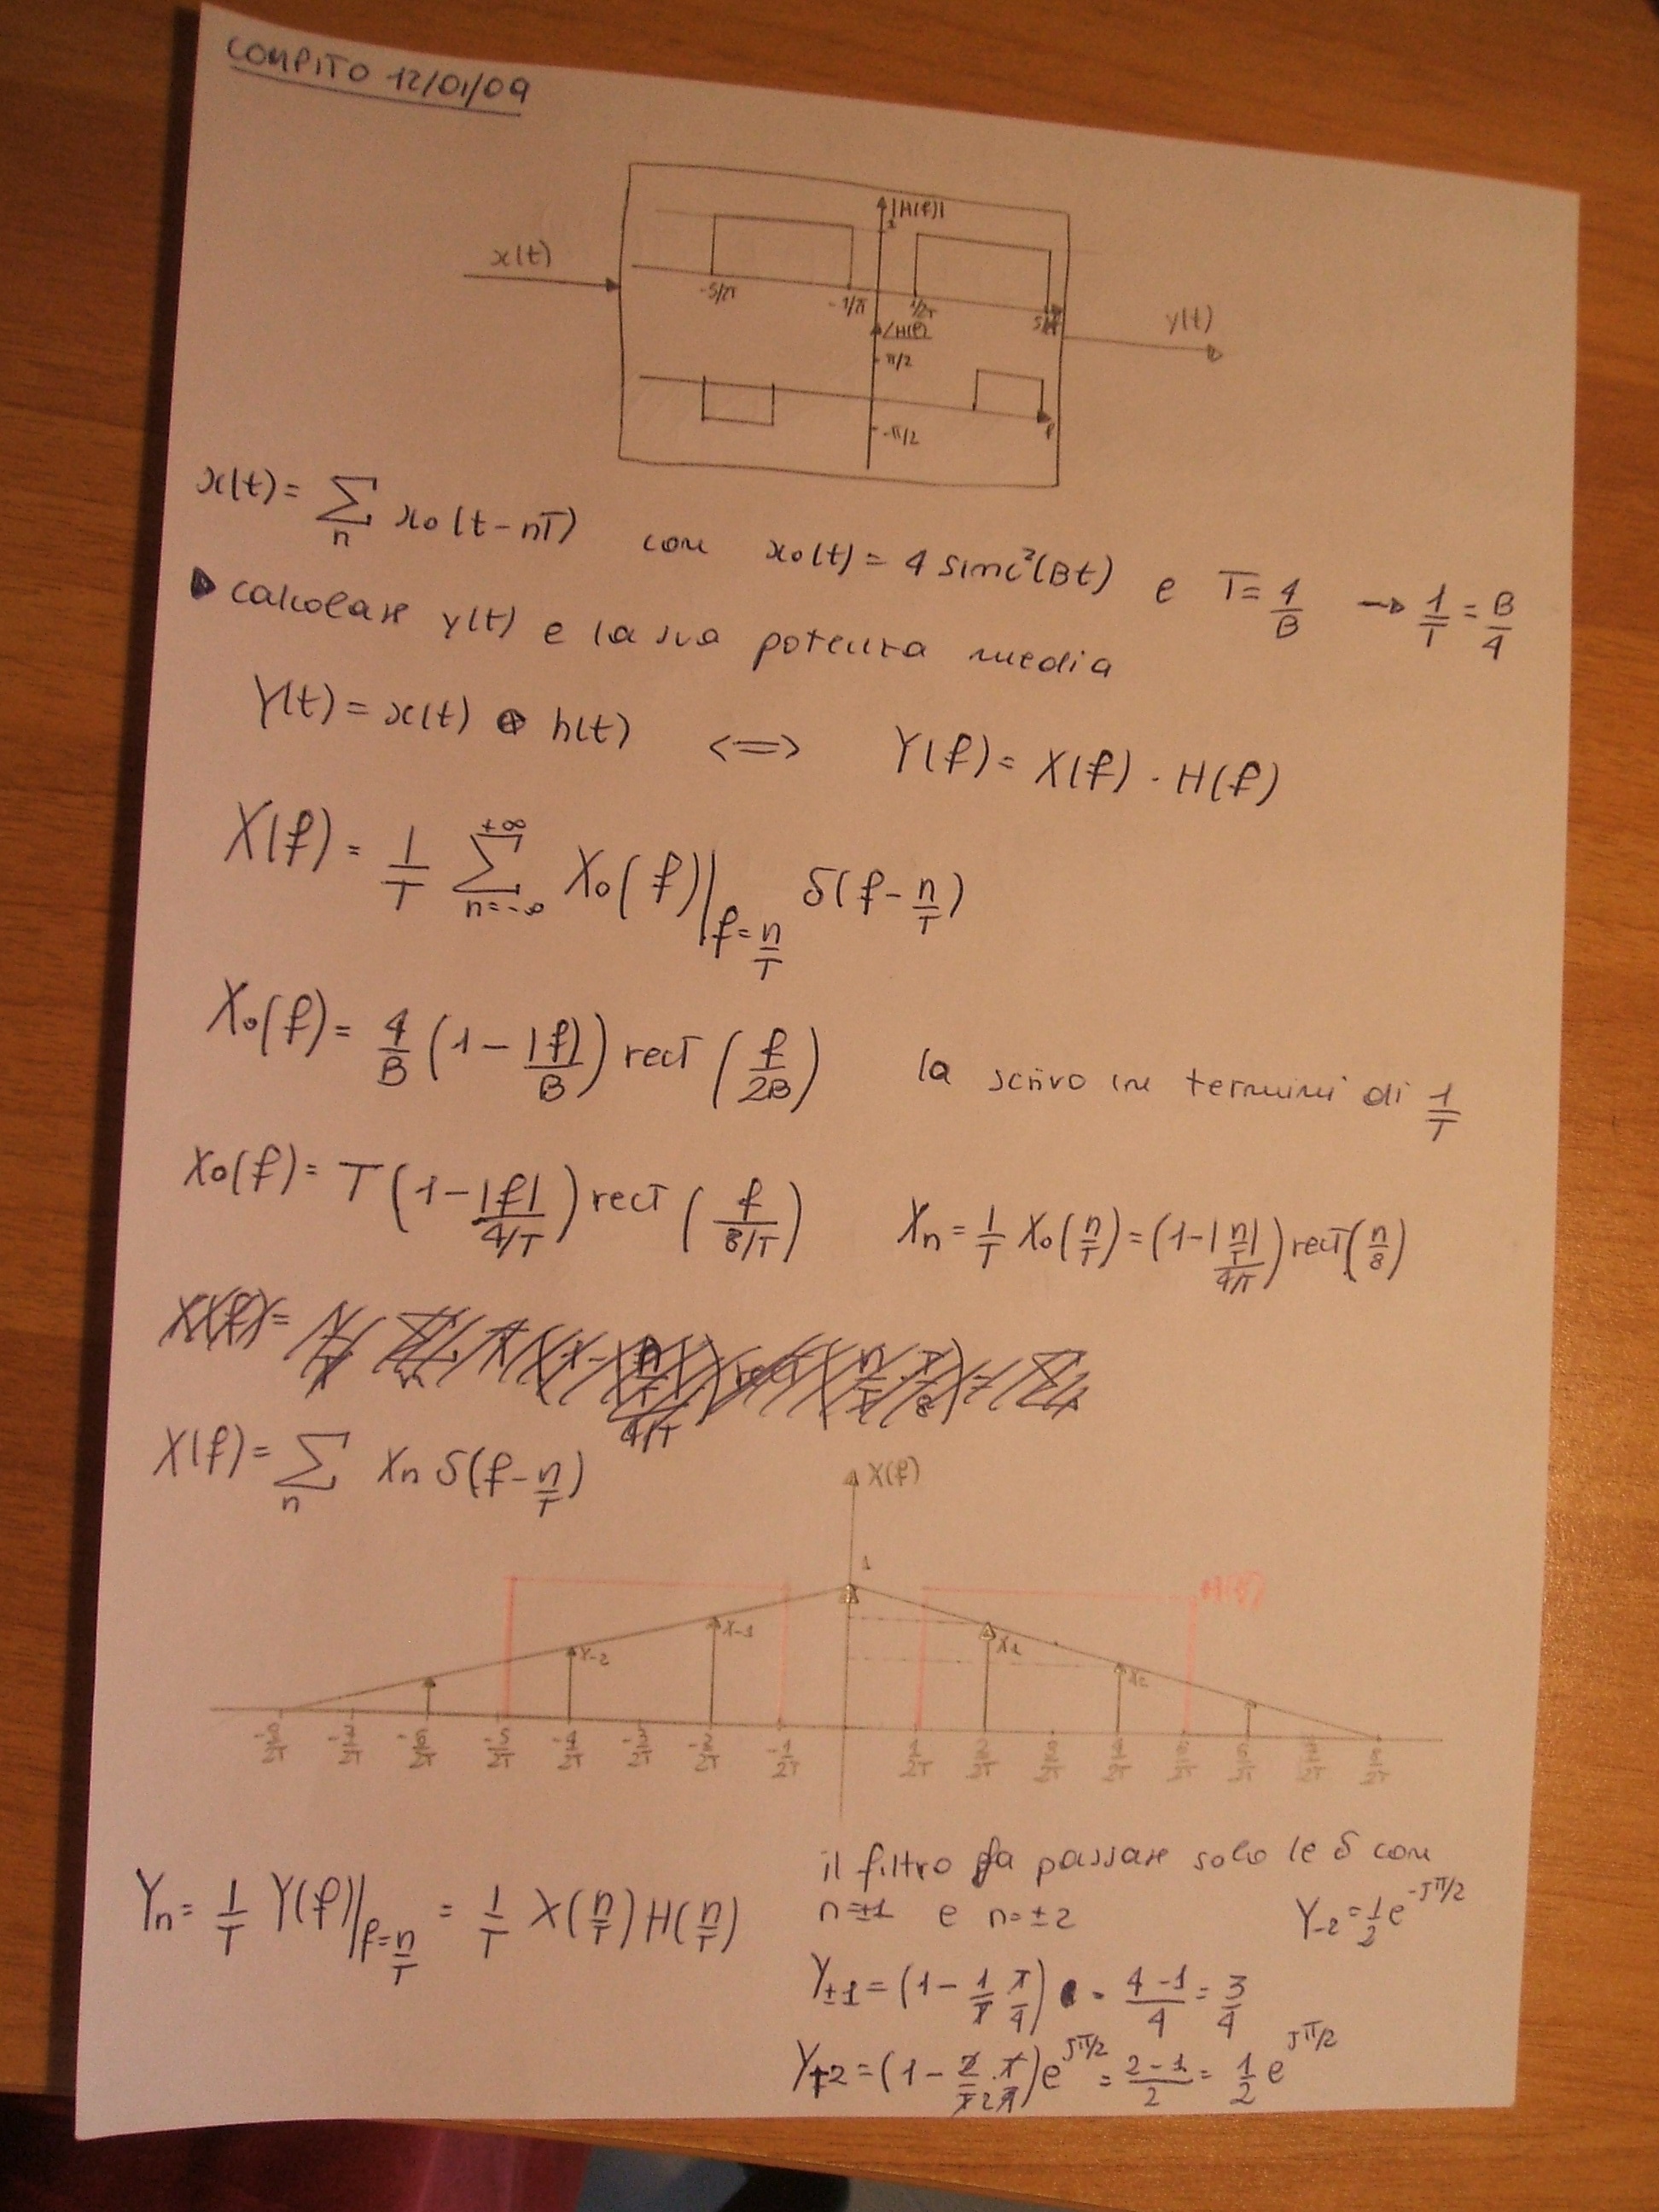 COMPITO 12/01/09
|H(f)|
1
x(t)
-5/2T -1/2T 1/2T
y(t)
∠H(f)
π/2
-π/2
f
x(t) = Σ_n x₀(t-nT) con x₀(t) = 4 sinc²(Bt) e T = 4/B → 1/T = B/4
calcolare y(t) e la sua potenza media
Y(t) = x(t) ⊗ h(t) <=> Y(f) = X(f) · H(f)
X(f) = 1/T Σ_{n=-∞}^{+∞} X₀(f)|_{f=n/T} δ(f-n/T)
X₀(f) = 4/B (1 - |f|/B) rect (f/2B) la scrivo in termini di 1/T
X₀(f) = T (1 - |f|/(4/T)) rect (f/(8/T)) Xn = 1/T X₀(n/T) = (1-|n/T|/(4/T)) rect(n/8)
X(f) = Σ_n Xn δ(f-n/T)
X(f)
1
H(f)
X-2 X-1 X1 X2
-8/2T -7/2T -6/2T -5/2T -4/2T -3/2T -2/2T -1/2T 1/2T 2/2T 3/2T 4/2T 5/2T 6/2T 7/2T 8/2T
il filtro fa passare solo le δ con
n=±1 e n=±2
Y-2 = 1/2 e^{-jπ/2}
Yn = 1/T Y(f)|_{f=n/T} = 1/T X(n/T) H(n/T)
Y±1 = (1 - 1/T T/4) = (4-1)/4 = 3/4
Y+2 = (1 - 2/T · T/4) e^{jπ/2} = (2-1)/2 = 1/2 e^{jπ/2}